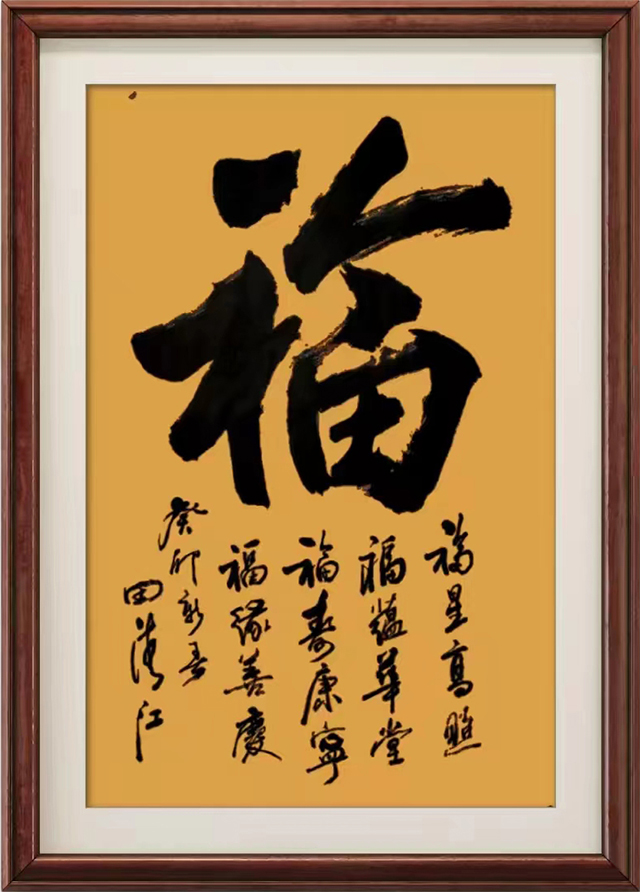 福
福星高照
福蕴華堂
福寿康寧
福缘善慶
癸卯新春
田清江